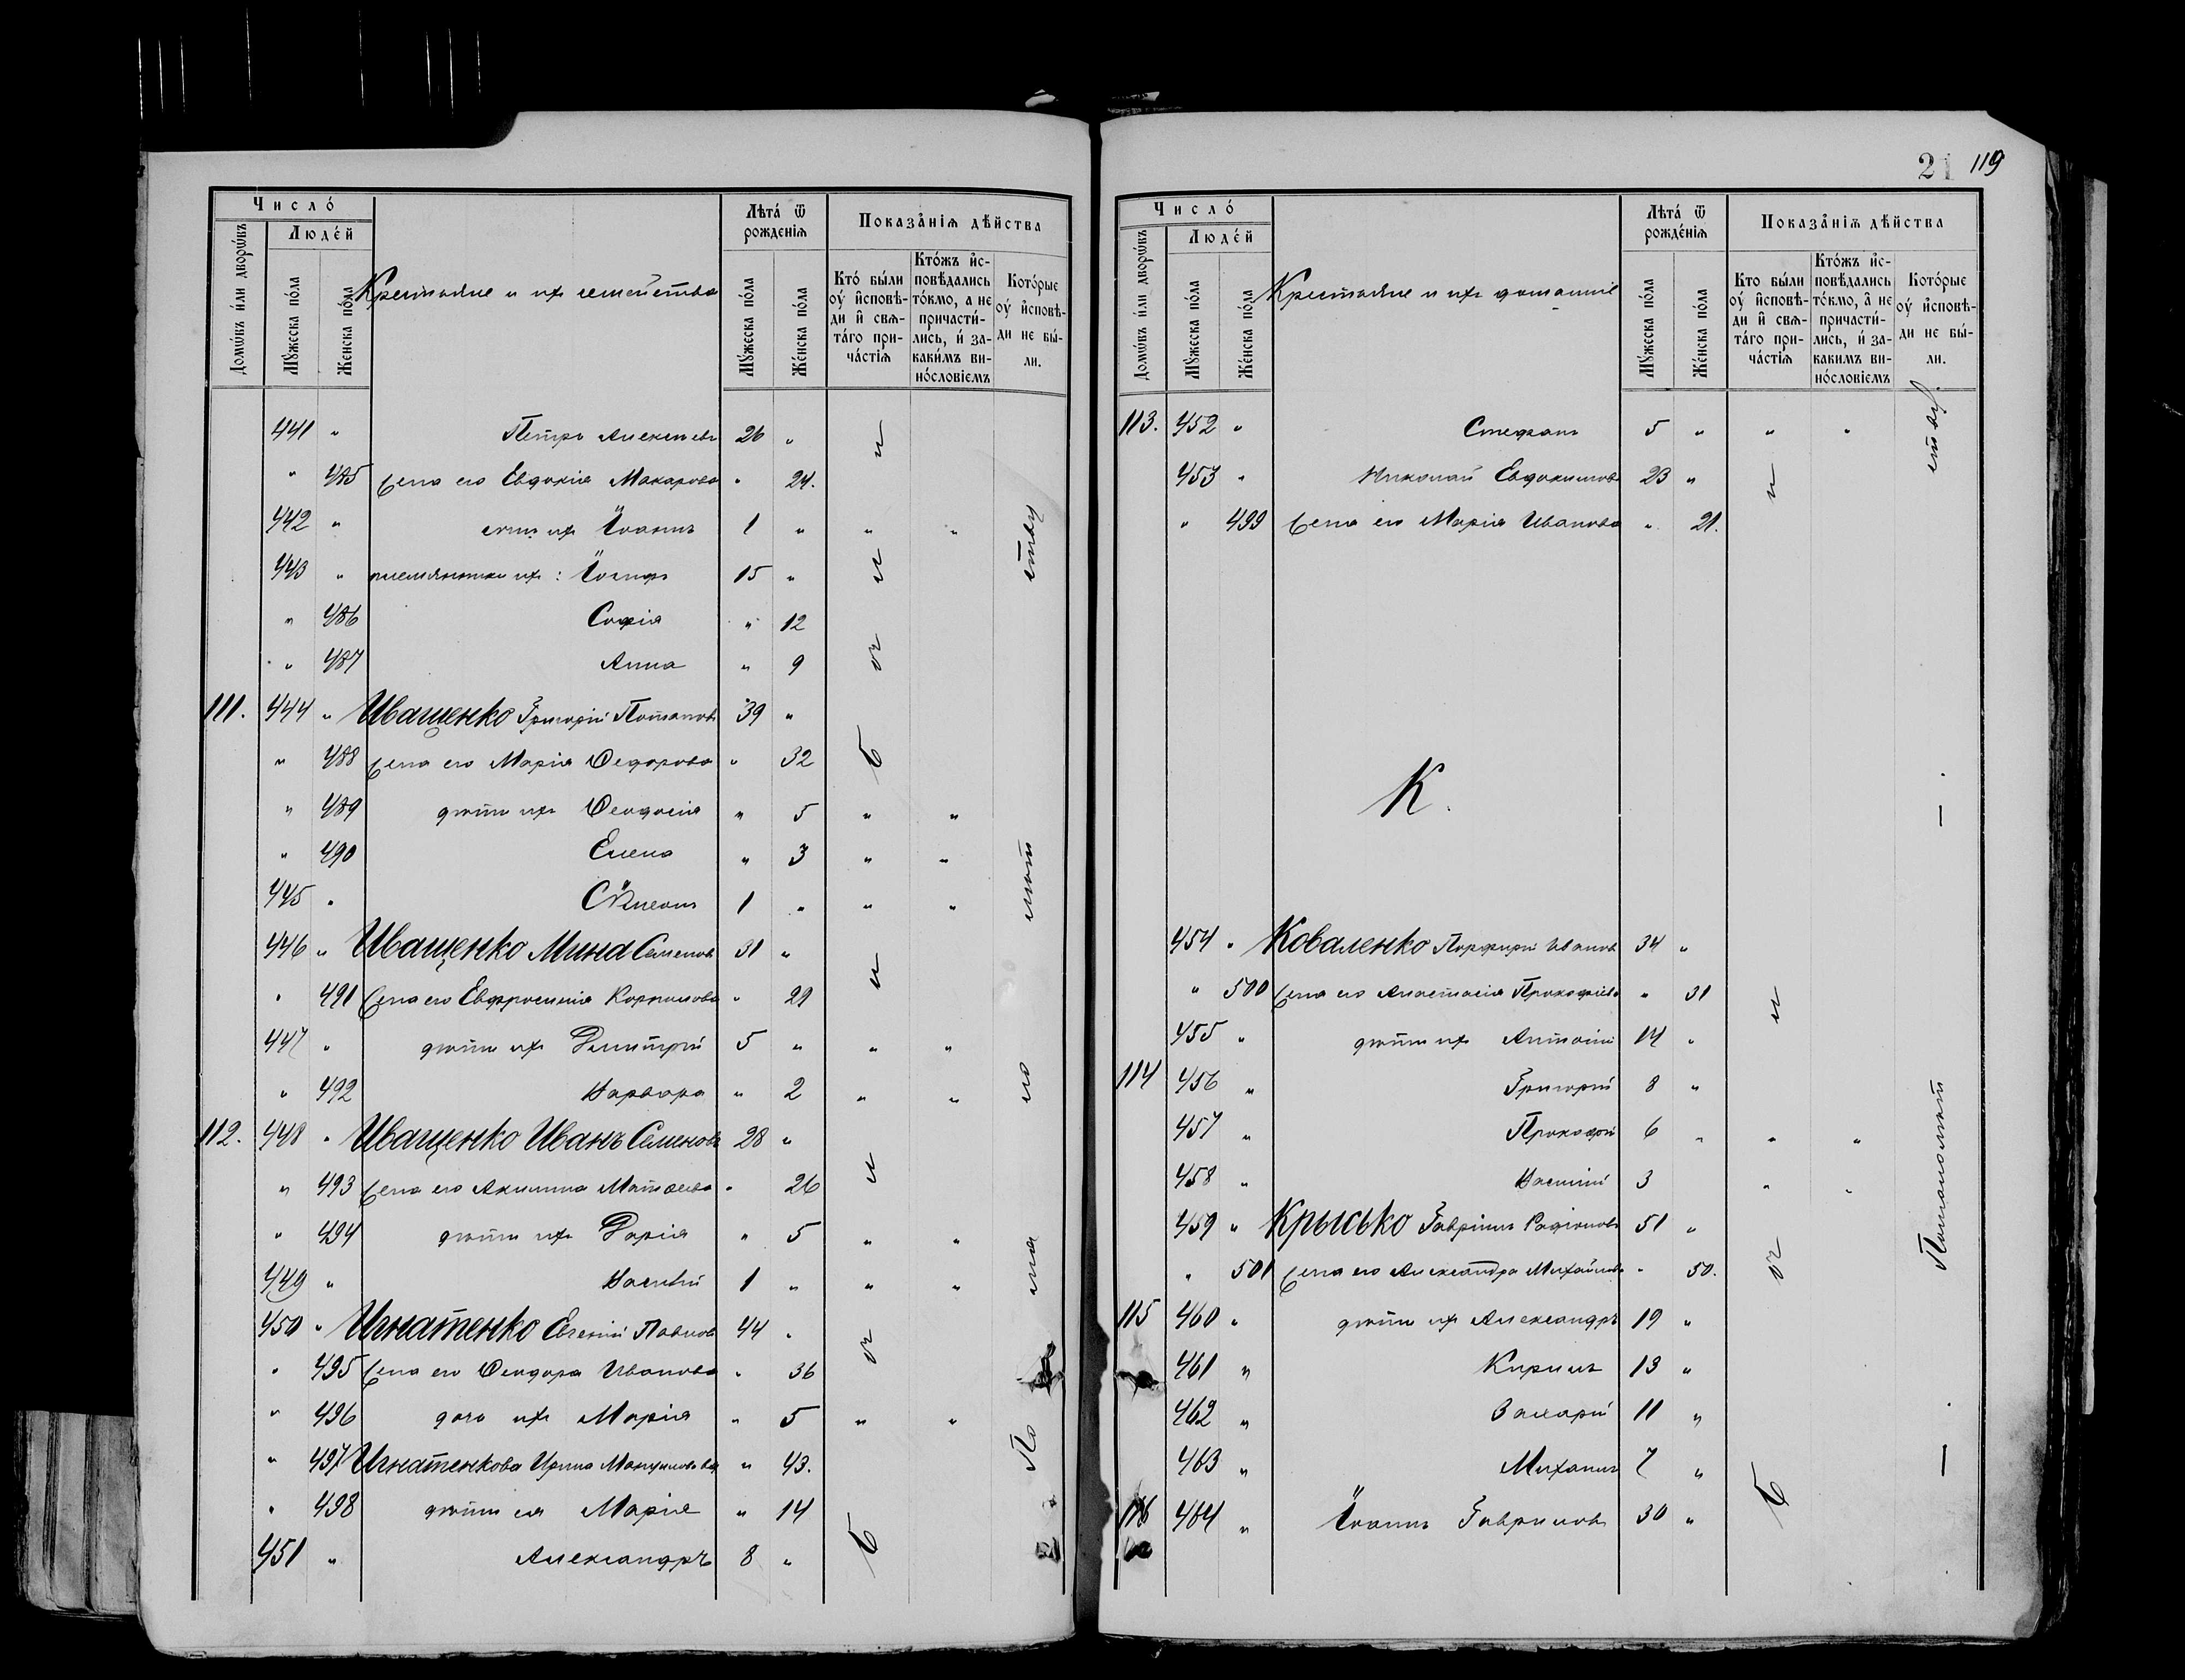 Число́
Люде́й
Домѡ́въ и҆ли дворѡ́въ
Мꙋ́жеска по́ла
Же́нска по́ла
Крестьяне и ихъ семейства
Лѣта́ ѿ рожде́нїѧ
Мꙋ́жеска по́ла
Же́нска по́ла
Показа̑нїѧ дѣ́йства
Кто́ бы́ли оу҆ и҆сповѣ-
ди и҆ свѧ-
та́го при-
ча́стїѧ
Кто́жъ и҆с-
повѣ́дались
то́кмо, а не
причасти́-
лись, и҆ за-
каки́мъ ви-
носло́вїемъ
Кото́рые
оу҆ и҆сповѣ́-
ди не бы́-
ли.
441 " Петръ Алексѣевъ 26 "
" 485 Жена его Евдокія Макарова " 24.
442 " сынъ ихъ Іоаннъ 1 " " "
443 " племянники ихъ: Іосифъ 15 "
" 486 Софія " 12
" 487 Анна " 9
111. 444 " Иващенко Григорій Потаповъ 39 "
" 488 Жена его Марія Ѳедорова " 32
" 489 дѣти ихъ Ѳеодосія " 5 " "
" 490 Елена " 3 " "
445 " Сѵмеонъ 1 " " "
446 " Иващенко Мина Семеновъ 31 "
" 491 Жена его Евфросинія Корнилова " 29
447 " дѣти ихъ Димитрій 5 " " "
" 492 Варвара " 2 " "
112. 448 " Иващенко Иванъ Семеновъ 28 "
" 493 Жена его Акилина Матѳеева " 26
" 494 дѣти ихъ Дарія " 5 " "
449 " Василій 1 " " "
450 " Игнатенко Евгеній Павловъ 44 "
" 495 Жена его Ѳеодора Иванова " 36
" 496 дочь ихъ Марія " 5 " "
" 497 Игнатенкова Ирина Максимова вд. " 43.
" 498 дѣти ея Марія " 14
451 " Александръ 8 "
По
мало
лѣт
ству
21 119
Число́
Люде́й
Домѡ́въ и҆ли дворѡ́въ
Мꙋ́жеска по́ла
Же́нска по́ла
Крестьяне и ихъ домашніе
Лѣта́ ѿ рожде́нїѧ
Мꙋ́жеска по́ла
Же́нска по́ла
Показа̑нїѧ дѣ́йства
Кто бы́ли
оу҆ и҆сповѣ́-
ди и҆ свѧ-
та́го при-
ча́стїѧ
Кто́жъ и҆с-
повѣ́дались
то́кмо, а҆ не
причасти́-
лись, и҆ за-
каки́мъ ви-
носло́вїемъ
Кото́рые
оу҆ и҆сповѣ́-
ди не бы́-
ли.
113. 452 " Стефанъ 5 " " "
453 " Николай Евдокимовъ 23 "
" 499 Жена его Марія Иванова " 21.
К.
454 " Коваленко Порфирій Ивановъ 34 "
" 500 Жена его Анастасія Прокофіева " 31
455 " дѣти ихъ Антоній 14 "
114 456 " Григорій 8 "
457 " Прокофій 6 " " "
458 " Василій 3 " "
459 " Крысько Гавріилъ Родіоновъ 51 "
" 501 Жена его Александра Михайлова " 50.
115 460 " дѣти ихъ Александръ 19 "
461 " Кириллъ 13 "
462 " Захарій 11 "
463 " Михаилъ 7 "
116 464 " Іоаннъ Гавриловъ 30 "
По малолѣт
ству.